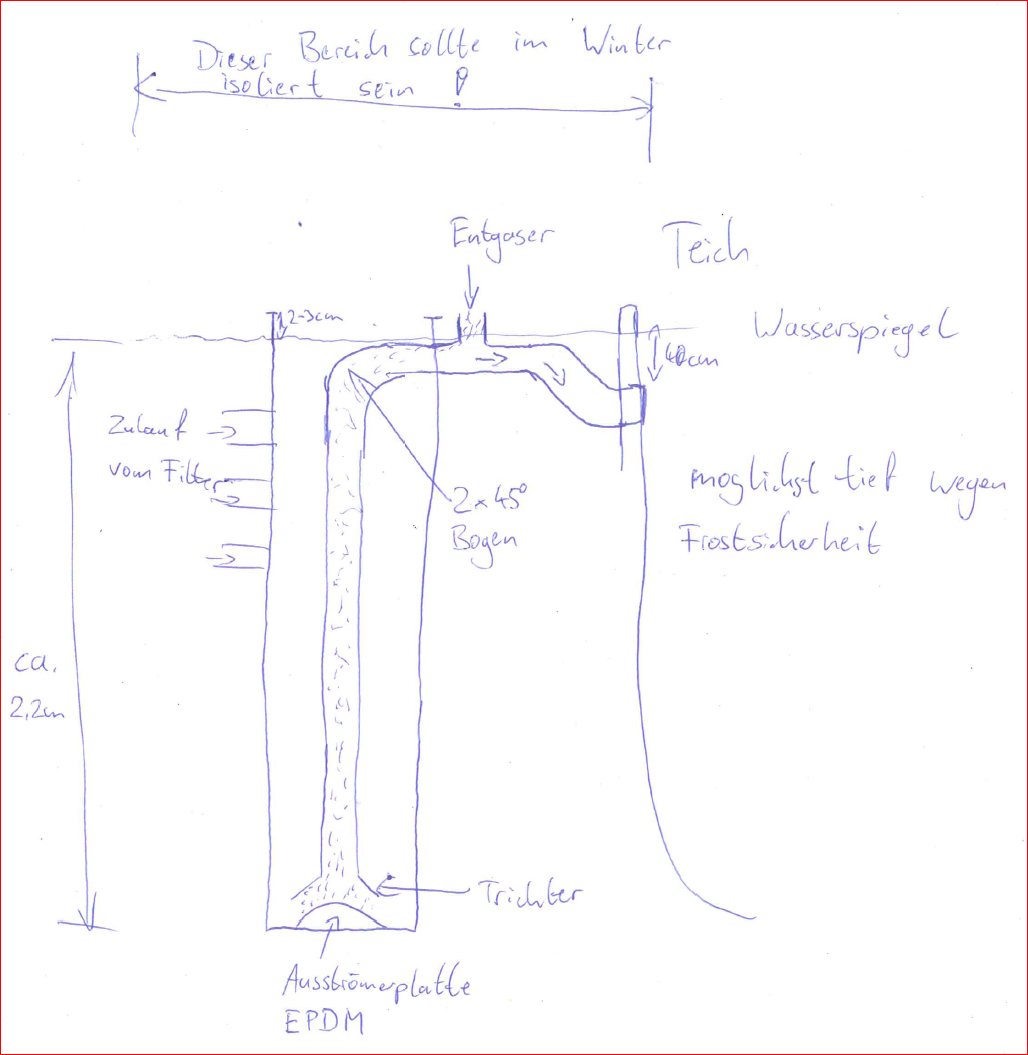 Dieser Bereich sollte im Winter
isoliert sein !
Entgaser
Teich
2-3cm
Wasserspiegel
40cm
Zulauf
vom Filter
möglichst tief wegen
Frostsicherheit
2x45°
Bogen
ca.
2,2m
Trichter
Ausströmerplatte
EPDM